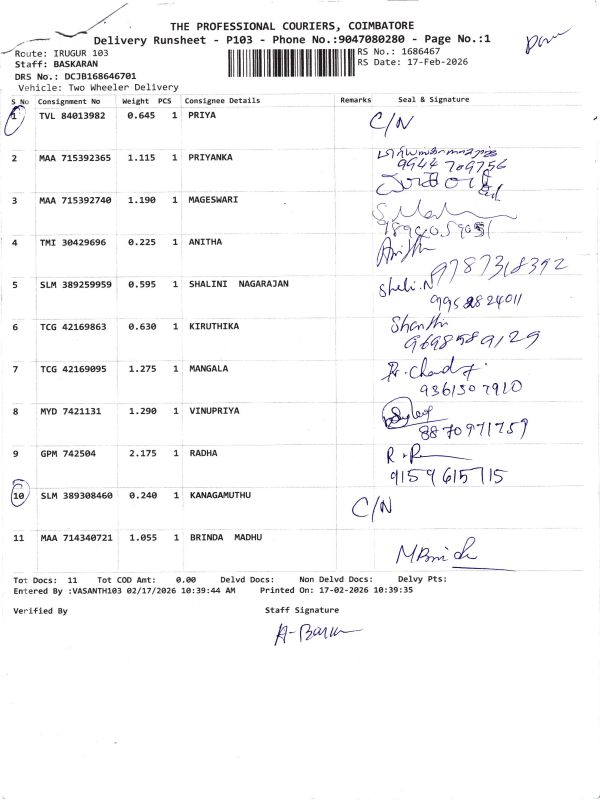 THE PROFESSIONAL COURIERS, COIMBATORE
Delivery Runsheet - P103 - Phone No.:9047080280 - Page No.:1
Route: IRUGUR 103 RS No.: 1686467
Staff: BASKARAN RS Date: 17-Feb-2026
DRS No.: DCJB168646701
Vehicle: Two Wheeler Delivery
S No Consignment No Weight PCS Consignee Details Remarks Seal & Signature
1 TVL 84013982 0.645 1 PRIYA C/N
2 MAA 715392365 1.115 1 PRIYANKA
9944709756
3 MAA 715392740 1.190 1 MAGESWARI
4 TMI 30429696 0.225 1 ANITHA
9787318392
5 SLM 389259959 0.595 1 SHALINI NAGARAJAN
9952824011
6 TCG 42169863 0.630 1 KIRUTHIKA Shanthi
9698589129
7 TCG 42169095 1.275 1 MANGALA
9361307910
8 MYD 7421131 1.290 1 VINUPRIYA
8870971759
9 GPM 742504 2.175 1 RADHA
9159615715
10 SLM 389308460 0.240 1 KANAGAMUTHU C/N
11 MAA 714340721 1.055 1 BRINDA MADHU
Tot Docs: 11 Tot COD Amt: 0.00 Delvd Docs: Non Delvd Docs: Delvy Pts:
Entered By :VASANTH103 02/17/2026 10:39:44 AM Printed On: 17-02-2026 10:39:35
Verified By Staff Signature